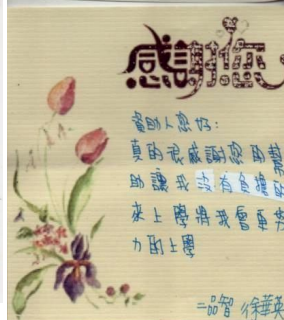 感謝您
資助人您好:
真的很感謝您的幫
助讓我沒有負擔的
來上學將我會更努
力的上學
二品智 徐華英